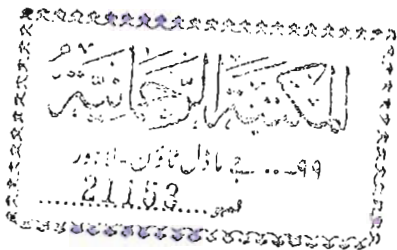 المکتبۃ الرحمانیۃ
۹۹ ... جے ماڈل ٹاؤن - لاہور
نمبر ... 21153 ...